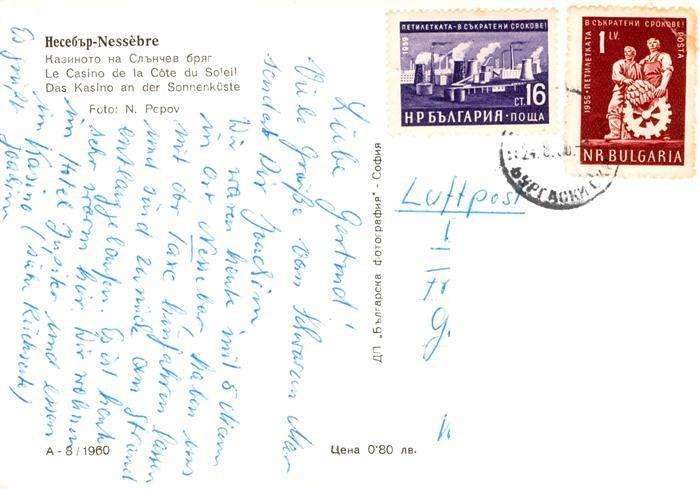 Несебър-Nessèbre
Казиното на Слънчев бряг
Le Casino de la Côte du Soleil
Das Kasino an der Sonnenküste
Foto: N. Popov
1959 ПЕТИЛЕТКАТА - В СЪКРАТЕНИ СРОКОВЕ!
СТ. 16
НР БЪЛГАРИЯ · ПОЩА
1959 - ПЕТИЛЕТКАТА - В СЪКРАТЕНИ СРОКОВЕ! POSTA
1 LV.
NR BULGARIA
24.8.60
БУРГАСКИ
Liebe Gertrud!
Viele Grüße vom Schwarzen Meer
sendet Dir Joachim
Wir waren heute mit 5 Mann
im Ort Nessebar, haben uns
mit der Taxe hinfahren lassen
und sind zurück am Strand
entlang gelaufen. Es ist heute
sehr warm hier. Wir wohnen
im Hotel Jupiter und essen
im Kasino (siehe Rückseite)
Es grüßt
Joachim
Luftpost
ДП „Българска фотография" - София
А - 8 / 1960
Цена 0·80 лв.